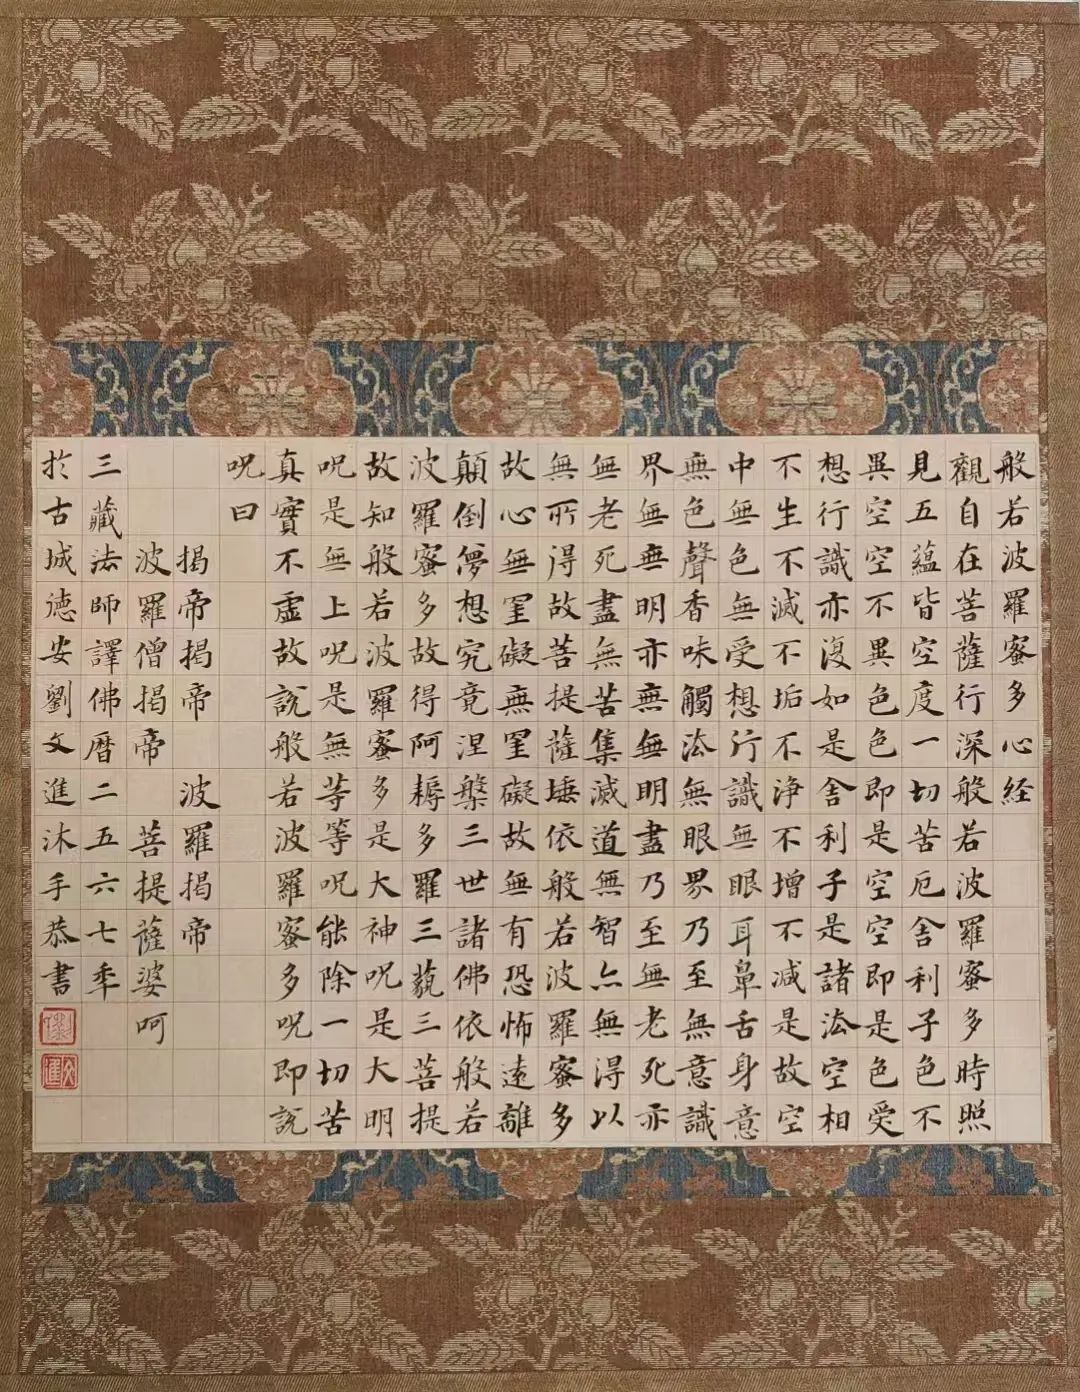 般若波羅蜜多心経
觀自在菩薩行深般若波羅蜜多時照
見五蘊皆空度一切苦厄舍利子色不
異空空不異色色即是空空即是色受
想行識亦復如是舍利子是諸法空相
不生不滅不垢不淨不增不減是故空
中無色無受想行識無眼耳鼻舌身意
無色聲香味觸法無眼界乃至無意識
界無無明亦無無明盡乃至無老死亦
無老死盡無苦集滅道無智亦無得以
無所得故菩提薩埵依般若波羅蜜多
故心無罣礙無罣礙故無有恐怖遠離
顛倒夢想究竟涅槃三世諸佛依般若
波羅蜜多故得阿耨多羅三藐三菩提
故知般若波羅蜜多是大神呪是大明
呪是無上呪是無等等呪能除一切苦
真實不虛故說般若波羅蜜多呪即說
呪曰
揭帝揭帝 波羅揭帝
波羅僧揭帝 菩提薩婆呵
三藏法師譯佛曆二五六七年
扵古城德安劉文進沐手恭書
文進